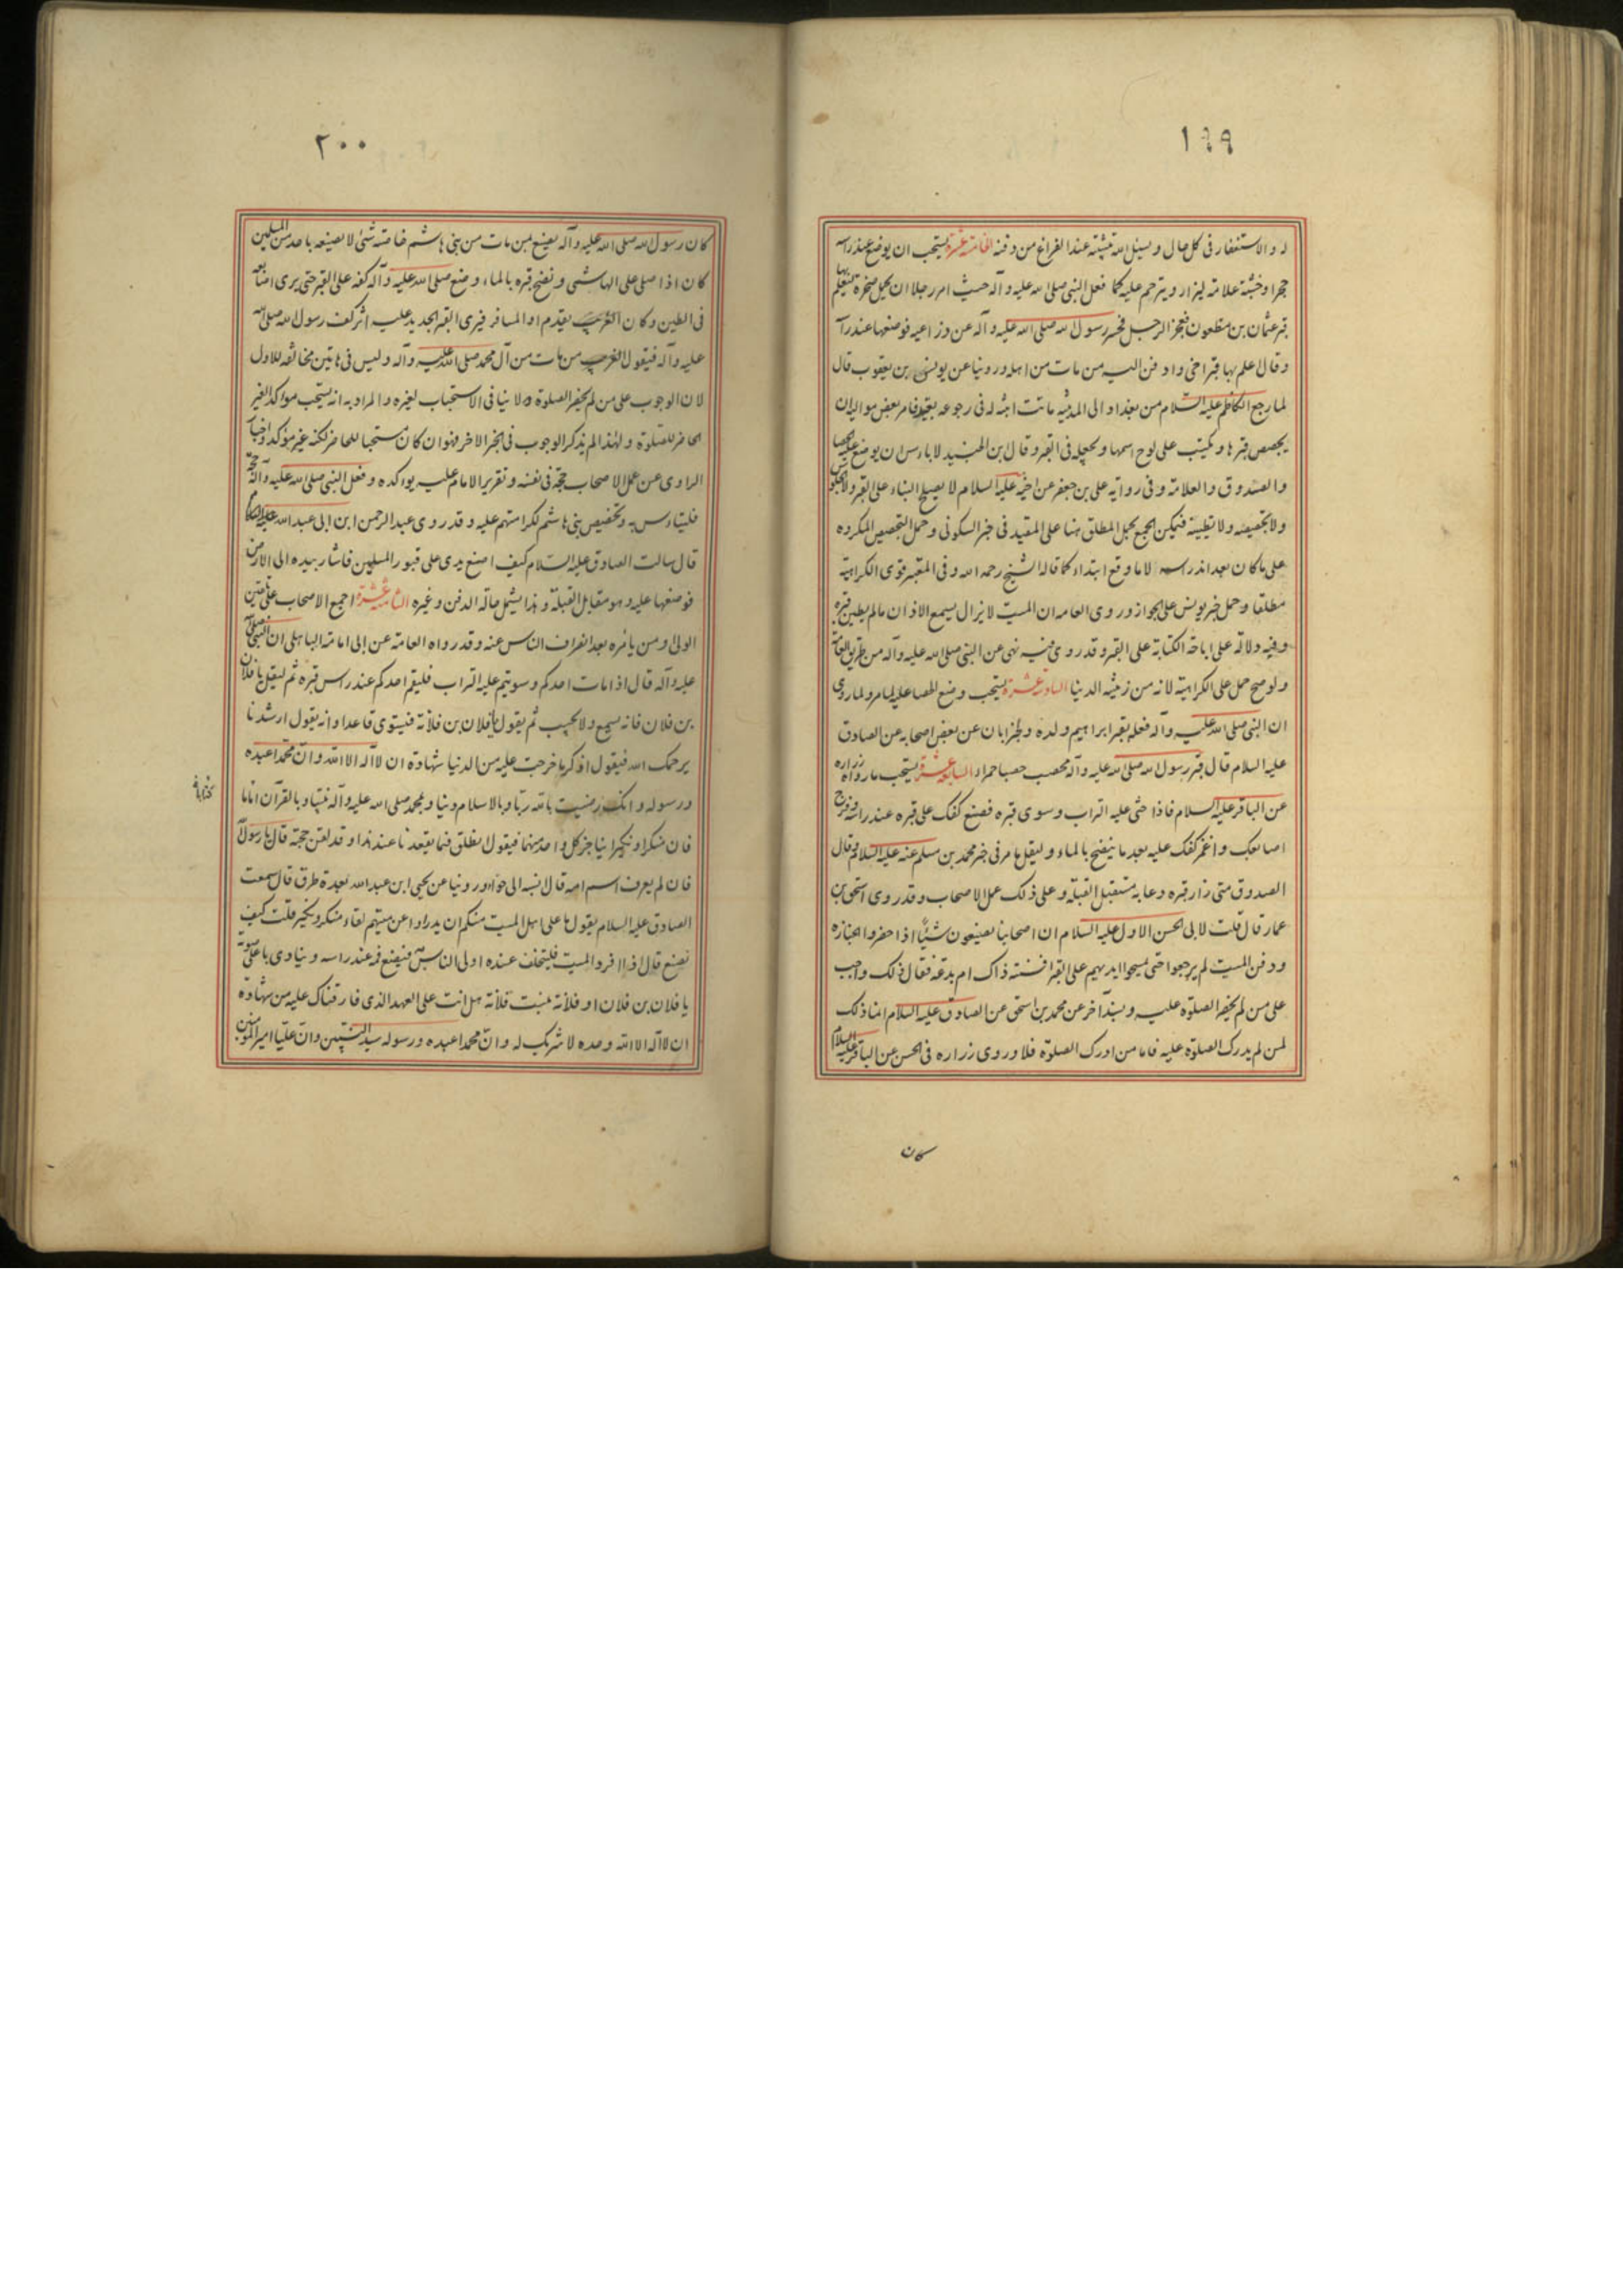 ١٩٩
له والاستغفار فى كل حال ويسئل الله تثبيته عند الفراغ من دفنه الخامسة عشرة يستحب ان يوضع عند راسه
حجرا وخشبة علامة ليزار ويترحم عليه كما فعل النبى صلى الله عليه وآله حيث امر رجلا ان يحمل صخرة ليعلم بها
قبر عثمان بن مظعون فعجز الرجل فحسر رسول الله صلى الله عليه وآله عن ذراعيه فوضعها عند راسه
وقال علم بها قبر اخى وادفن اليه من مات من اهله وروينا عن يونس بن يعقوب قال
لما رجع الكاظم عليه السلام من بغداد الى المدينة ماتت ابنة له فى رجوعه بفيد فامر بعض مواليه ان
يجصص قبرها ويكتب على لوح اسمها ويجعله فى القبر وقال بن الجنيد لا باس ان يوضع عليه الحصا
والصندوق والعلامة وفى رواية على بن جعفر عن اخيه عليه السلام لا يصلح البناء على القبر ولا الجلوس
ولا تجصيصه ولا تطيينه فيمكن الجمع بحمل المطلق هنا على المقيد فى خبر السكونى وحمل التجصيص المكروه
على ما كان بعد اندراسه لا ما وقع ابتداء كما قاله الشيخ رحمه الله وفى المعتبر قوى الكراهية
مطلقا وحمل خبر يونس على الجواز وروى العامه ان الميت لا يزال يسمع الاذان ما لم يطين قبره
وفيه دلالة على اباحة الكتابة على القبر وقد روى فيه نهى عن النبى صلى الله عليه وآله من طريق العامة
ولو صح حمل على الكراهية لانه من زينة الدنيا السادسة عشرة يستحب وضع الحصا عليه لما مر ولما روى
ان النبى صلى الله عليه وآله فعله بقبر ابراهيم ولده ولخبر ابان عن بعض اصحابه عن الصادق
عليه السلام قال قبر رسول الله صلى الله عليه وآله محصب حصبا حمراء السابعة عشرة يستحب ما رواه زراره
عن الباقر عليه السلام فاذا حثى عليه التراب وسوى قبره فضع كفك على قبره عند راسه وفرج
اصابعك واغمز كفك عليه بعد ما ينضح بالماء وليقل ما مر فى خبر محمد بن مسلم عنه عليه السلام وقال
الصدوق متى زار قبره دعا به مستقبل القبلة وعلى ذلك عمل الاصحاب وقد روى اسحق بن
عمار قال قلت لابى الحسن الاول عليه السلام ان اصحابنا يصنعون شيئا اذا حضروا الجنازه
ودفن الميت لم يرجعوا حتى يمسحوا ايديهم على القبر افسنته ذاك ام بدعة فقال ذلك واجب
على من لم يحضر الصلوة عليه وبسند آخر عن محمد بن اسحق عن الصادق عليه السلام انما ذلك
لمن لم يدرك الصلوة عليه فاما من ادرك الصلوة فلا وروى زراره فى الحسن عن الباقر عليه السلام
كان
٢٠٠
كان رسول الله صلى الله عليه وآله يصنع بمن مات من بنى هاشم خاصة شئ لا يصنعه باحد من المسلمين
كان اذا صلى على الهاشمى ونضح قبره بالماء وضع صلى الله عليه وآله كفه على القبر حتى يرى اصابعه
فى الطين وكان الغريب يقدم او المسافر فيرى القبر الجديد عليه اثر كف رسول الله صلى الله
عليه وآله فيقول الغريب من مات من آل محمد صلى الله عليه وآله وليس فى هاتين مخالفة للاول
لان الوجوب على من لم يحضر الصلوة ولا ينافى الاستحباب لغيره والمراد به انه يستحب مواكدا لغير
الحاضر للصلوة ولهذا لم يذكر الوجوب فى الخبر الاخر فهو وان كان مستحبا للحاضر لكنه غير مؤكد واخبار
الراوى عن عمل الاصحاب حجة فى نفسه وتقرير الامام عليه يواكده وفعل النبى صلى الله عليه وآله حجة
فليتاس به وتخصيص بنى هاشم لكرامتهم عليه وقد روى عبد الرحمن ابن ابى عبد الله عليه السلام
قال سالت الصادق عليه السلام كيف اضع يدى على قبور المسلمين فاشار بيده الى الارض
فوضعها عليه وهو مقابل القبلة وهذا يشمل حالة الدفن وغيره الثامنة عشرة اجمع الاصحاب على تلقين
الولى ومن يامره بعد انصراف الناس عنه وقد رواه العامة عن ابى امامة الباهلى ان النبى صلى الله
عليه وآله قال اذا مات احدكم وسويتم عليه التراب فليقم احدكم عند راس قبره ثم ليقل يا فلان
بن فلان فانه يسمع ولا يجيب ثم يقول يا فلان بن فلانة فيستوى قاعدا وانه يقول ارشدنا
يرحمك الله فيقول اذكر ما خرجت عليه من الدنيا شهادة ان لا اله الا الله وان محمدا عبده
ورسوله وانك رضيت بالله ربا وبالاسلام دينا وبمحمد صلى الله عليه وآله نبيا وبالقرآن اماما
فان منكرا ونكيرا يتاخر كل واحد منهما فيقول انطلق فما يقعدنا عند هذا وقد لقن حجته قال يا رسول الله
فان لم يعرف اسم امه قال انسبه الى حواء وروينا عن يحيى ابن عبد الله بعدة طرق قال سمعت
الصادق عليه السلام يقول ما على اهل الميت منكم ان يدراوا عن ميتهم لقاء منكر ونكير قلت كيف
نصنع قال اذا افرد الميت فليتخلف عنده اولى الناس به فيضع فمه عند راسه وينادى باعلى صوته
يا فلان بن فلان او فلانة بنت فلانة هل انت على العهد الذى فارقناك عليه من شهادة
ان لا اله الا الله وحده لا شريك له وان محمدا عبده ورسوله سيد النبيين وان عليا امير المومنين